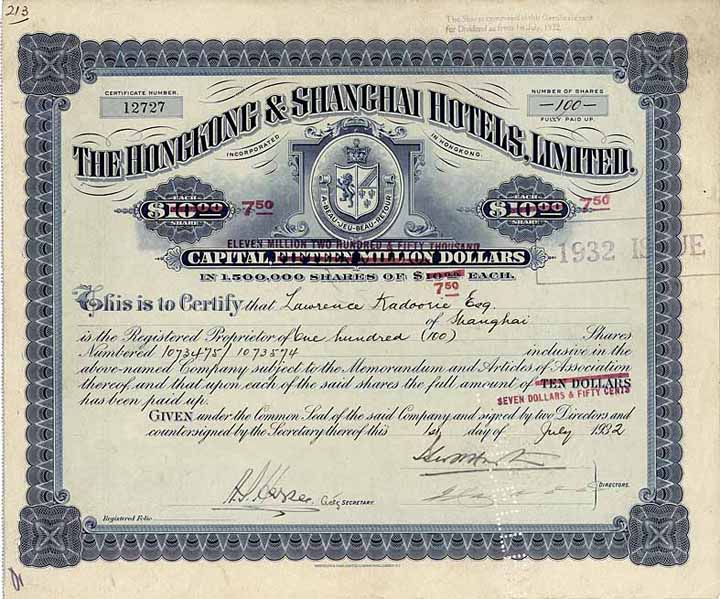 213
The Shares comprised in this Certificate rank
for Dividend as from 1st July, 1932.
CERTIFICATE NUMBER.
12727
NUMBER OF SHARES
—100—
FULLY PAID UP.
THE HONGKONG & SHANGHAI HOTELS, LIMITED.
INCORPORATED IN HONGKONG.
EACH $10.00 SHARE 7.50
EACH $10.00 SHARE 7.50
A·BEAU·JEU·BEAU·RETOUR
ELEVEN MILLION TWO HUNDRED & FIFTY THOUSAND
CAPITAL FIFTEEN MILLION DOLLARS
1932 ISSUE
IN 1,500,000 SHARES OF $10.00 EACH.
7.50
This is to Certify that Lawrence Kadoorie Esq.
of Shanghai
is the Registered Proprietor of One hundred (100) Shares
Numbered 1073475/1073574 inclusive in the
above-named Company subject to the Memorandum and Articles of Association
thereof, and that upon each of the said shares the full amount of TEN DOLLARS
SEVEN DOLLARS & FIFTY CENTS
has been paid up.
GIVEN under the Common Seal of the said Company and signed by two Directors and
countersigned by the Secretary thereof this 1st day of July 1932
SECRETARY.
DIRECTORS.
Registered Folio